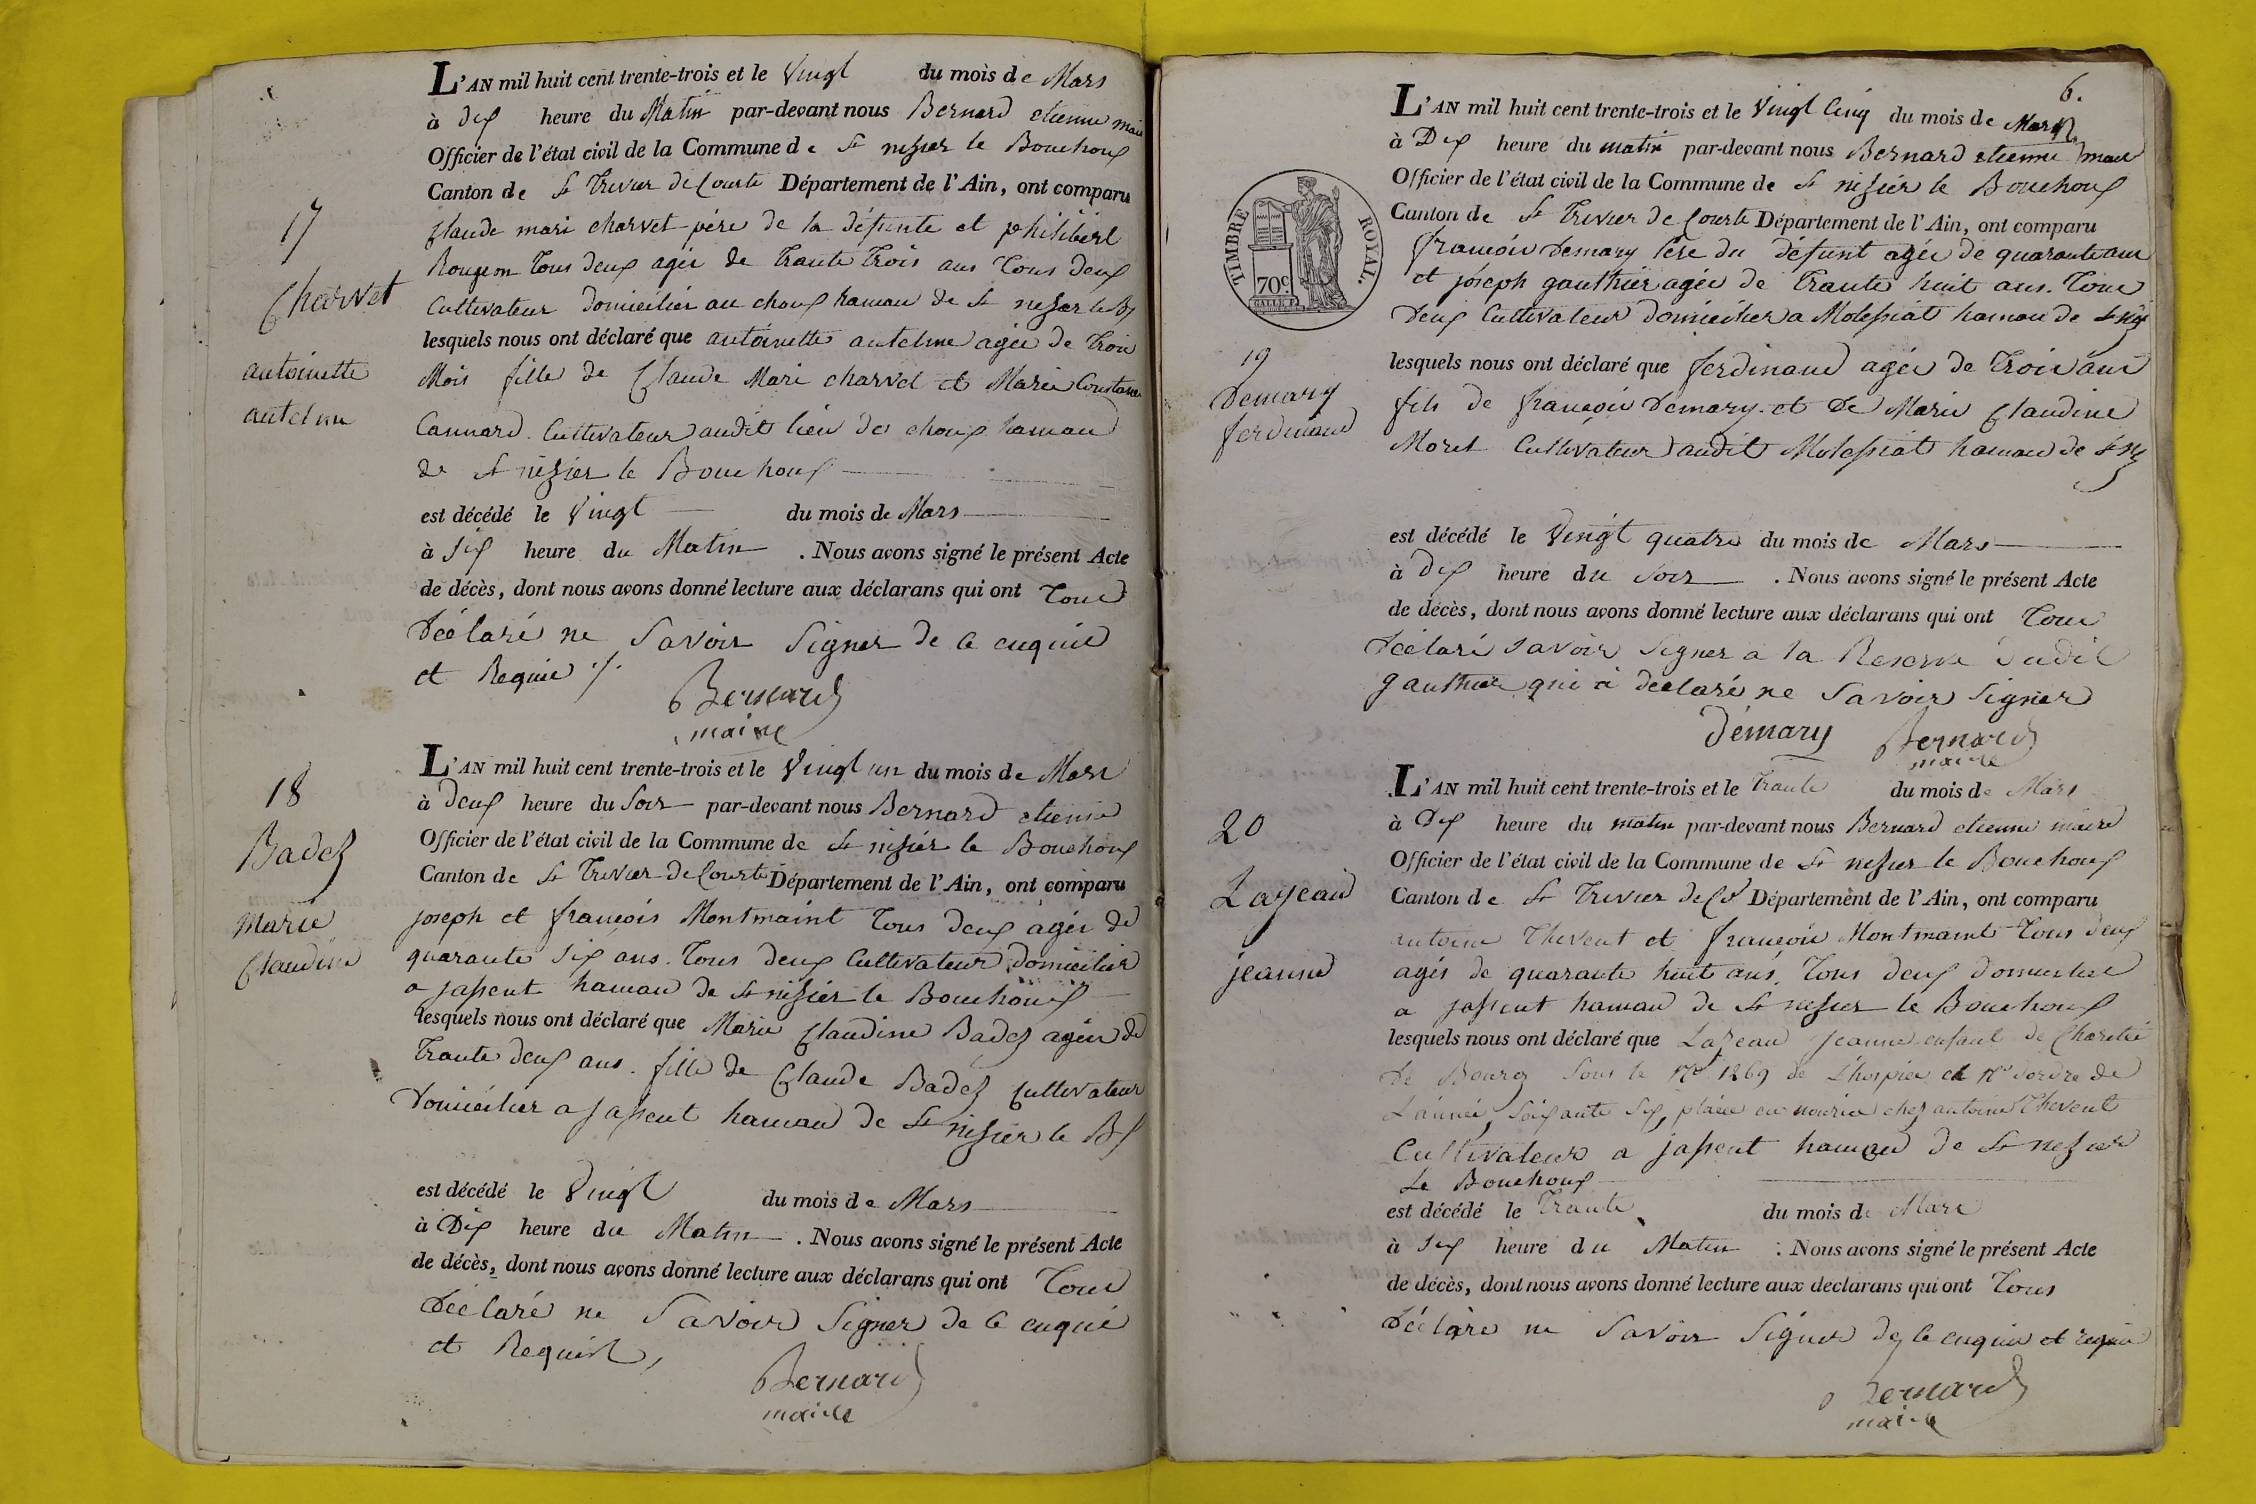 L'AN mil huit cent trente-trois et le Vingt du mois de Mars
à dix heure du Matin par-devant nous Bernard etienne maire
Officier de l'état civil de la Commune de St nisier le Bouchoux
Canton de St Trivier de Courte Département de l'Ain, ont comparu
17
Claude mari charvet père de la défunte et philibert
Rougeon Tous deux agés de Trante Trois ans Tous deux
Charvet
Cultivateur domicilier au choux hamau de St nisier le Bx
lesquels nous ont déclaré que antoinette antelme agée de Trois
antoinette
Mois fille de Claude Mari charvet et Marie Constance
antelme
Cannard. Cultivateur audit lieu des choux hamau
de St nisier le Bouchoux
est décédé le Vingt du mois de Mars
à Six heure du Matin . Nous avons signé le présent Acte
de décès, dont nous avons donné lecture aux déclarans qui ont Tous
Déclaré ne Savoir Signer de ce enquie
et Requie ./.
Bernard
maire
L'AN mil huit cent trente-trois et le Vingt un du mois de Mars
18
à Deux heure du Soir par-devant nous Bernard etienne
Officier de l'état civil de la Commune de St nisier le Bouchoux
Badez
Canton de St Trivier de Courte Département de l'Ain, ont comparu
joseph et françois Montmaint Tous deux agés de
Marie
quarante Six ans. Tous deux Cultivateur Domicilier
Claudine
a jassent hamau de St nisier le Bouchoux
lesquels nous ont déclaré que Marie Claudine Badez agée de
Trante deux ans. fille de Claude Badez Cultivateur
Domicilier a jassent hamau de St nisier le Bx
est décédé le Vingt du mois de Mars
à Dix heure du Matin . Nous avons signé le présent Acte
de décès, dont nous avons donné lecture aux déclarans qui ont Tous
Déclaré ne Savoir Signer de ce enquie
et Requie,
Bernard
maire
6.
L'AN mil huit cent trente-trois et le Vingt Cinq du mois de Mars
à Dix heure du matin par-devant nous Bernard etienne maire
Officier de l'état civil de la Commune de St nisier le Bouchoux
Canton de St Trivier de Courte Département de l'Ain, ont comparu
TIMBRE ROYAL.
70c
françois Demary père du défunt agée de quarante ans
et joseph gauthier agée de Trante huit ans. Tous
Deux Cultivateur Domicilier a Molessiat hamau de St nisr
19
lesquels nous ont déclaré que ferdinand agée de Trois ans
Demary
fils de françois Demary et De Marie Claudine
ferdinand
Morel Cultivateur audit Molessiat hamau de St Ny
est décédé le Vingt quatre du mois de Mars
à Dix heure du Soir . Nous avons signé le présent Acte
de décès, dont nous avons donné lecture aux déclarans qui ont Tous
Déclaré Savoir Signer a la Reserve Dudit
gauthier qui à déclaré ne Savoir Signer
Démary Bernard
maire
L'AN mil huit cent trente-trois et le Trante du mois de Mars
20
à Dix heure du matin par-devant nous Bernard etienne maire
Officier de l'état civil de la Commune de St nisier le Bouchoux
Layeau
Canton de St Trivier de Ct Département de l'Ain, ont comparu
antoine Thevent et françois Montmaint Tous deux
jeanne
agés de quarante huit ans. Tous deux domicilier
a jassent hamau de St nisier le Bouchoux
lesquels nous ont déclaré que Layeau jeanne enfant de Charité
De Bourg Sous le No 1269 de L'hospice et No Dordre de
L'année, Soixante Six, placée en nourice chez antoine Thevent
Cultivateur a jassent hamau de St nisier
Le Bouchoux
est décédé le Trante du mois de Mars
à Six heure du Matin . Nous avons signé le présent Acte
de décès, dont nous avons donné lecture aux declarans qui ont Tous
Déclaré ne Savoir Signer de ce enquie et requie
Bernard
maire